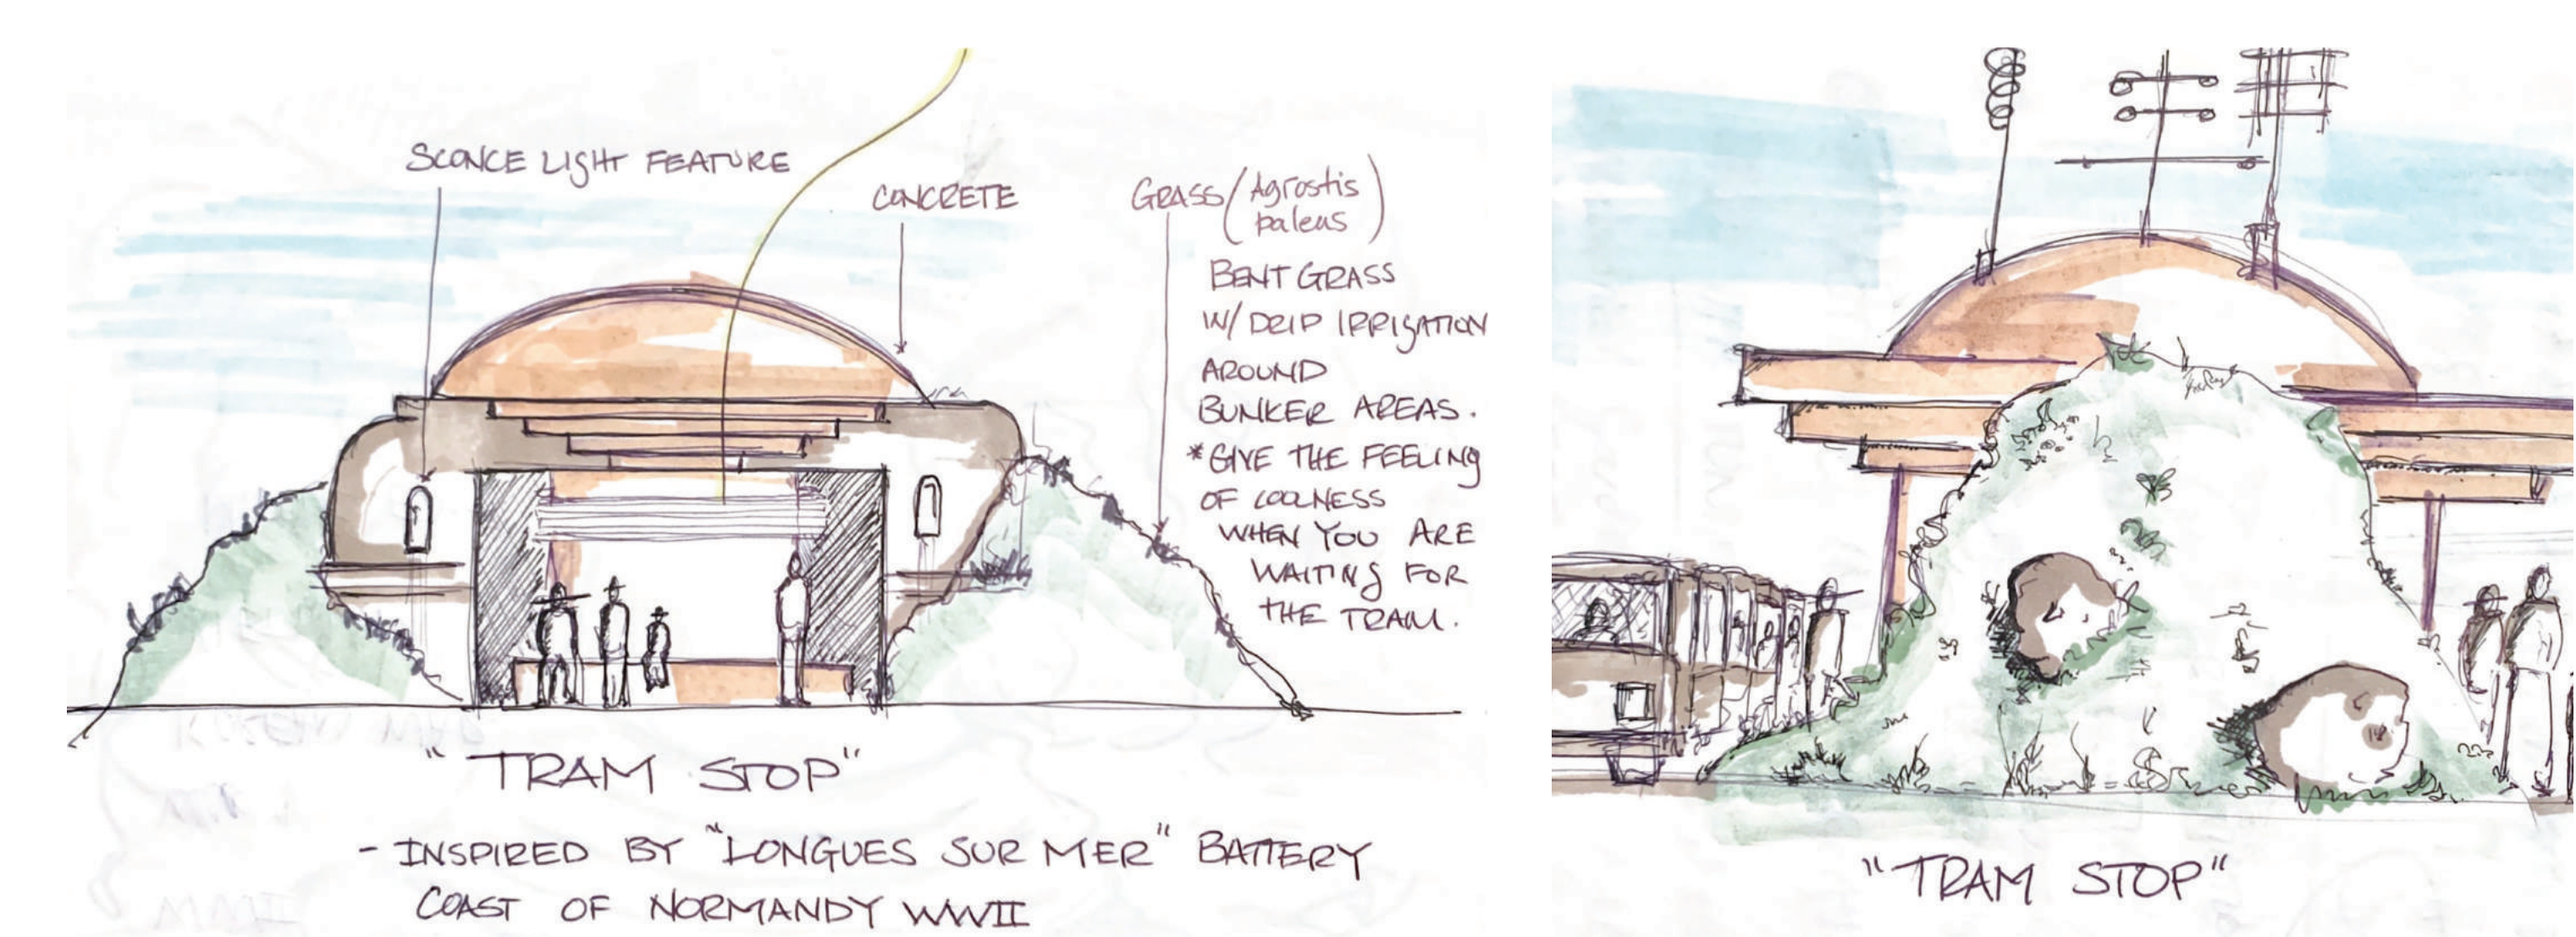 SCONCE LIGHT FEATURE
CONCRETE
GRASS (Agrostis
paleus)
BENT GRASS
W/ DRIP IRRIGATION
AROUND
BUNKER AREAS.
*GIVE THE FEELING
OF COOLNESS
WHEN YOU ARE
WAITING FOR
THE TRAM.
"TRAM STOP"
- INSPIRED BY "LONGUES SUR MER" BATTERY
COAST OF NORMANDY WWII
"TRAM STOP"